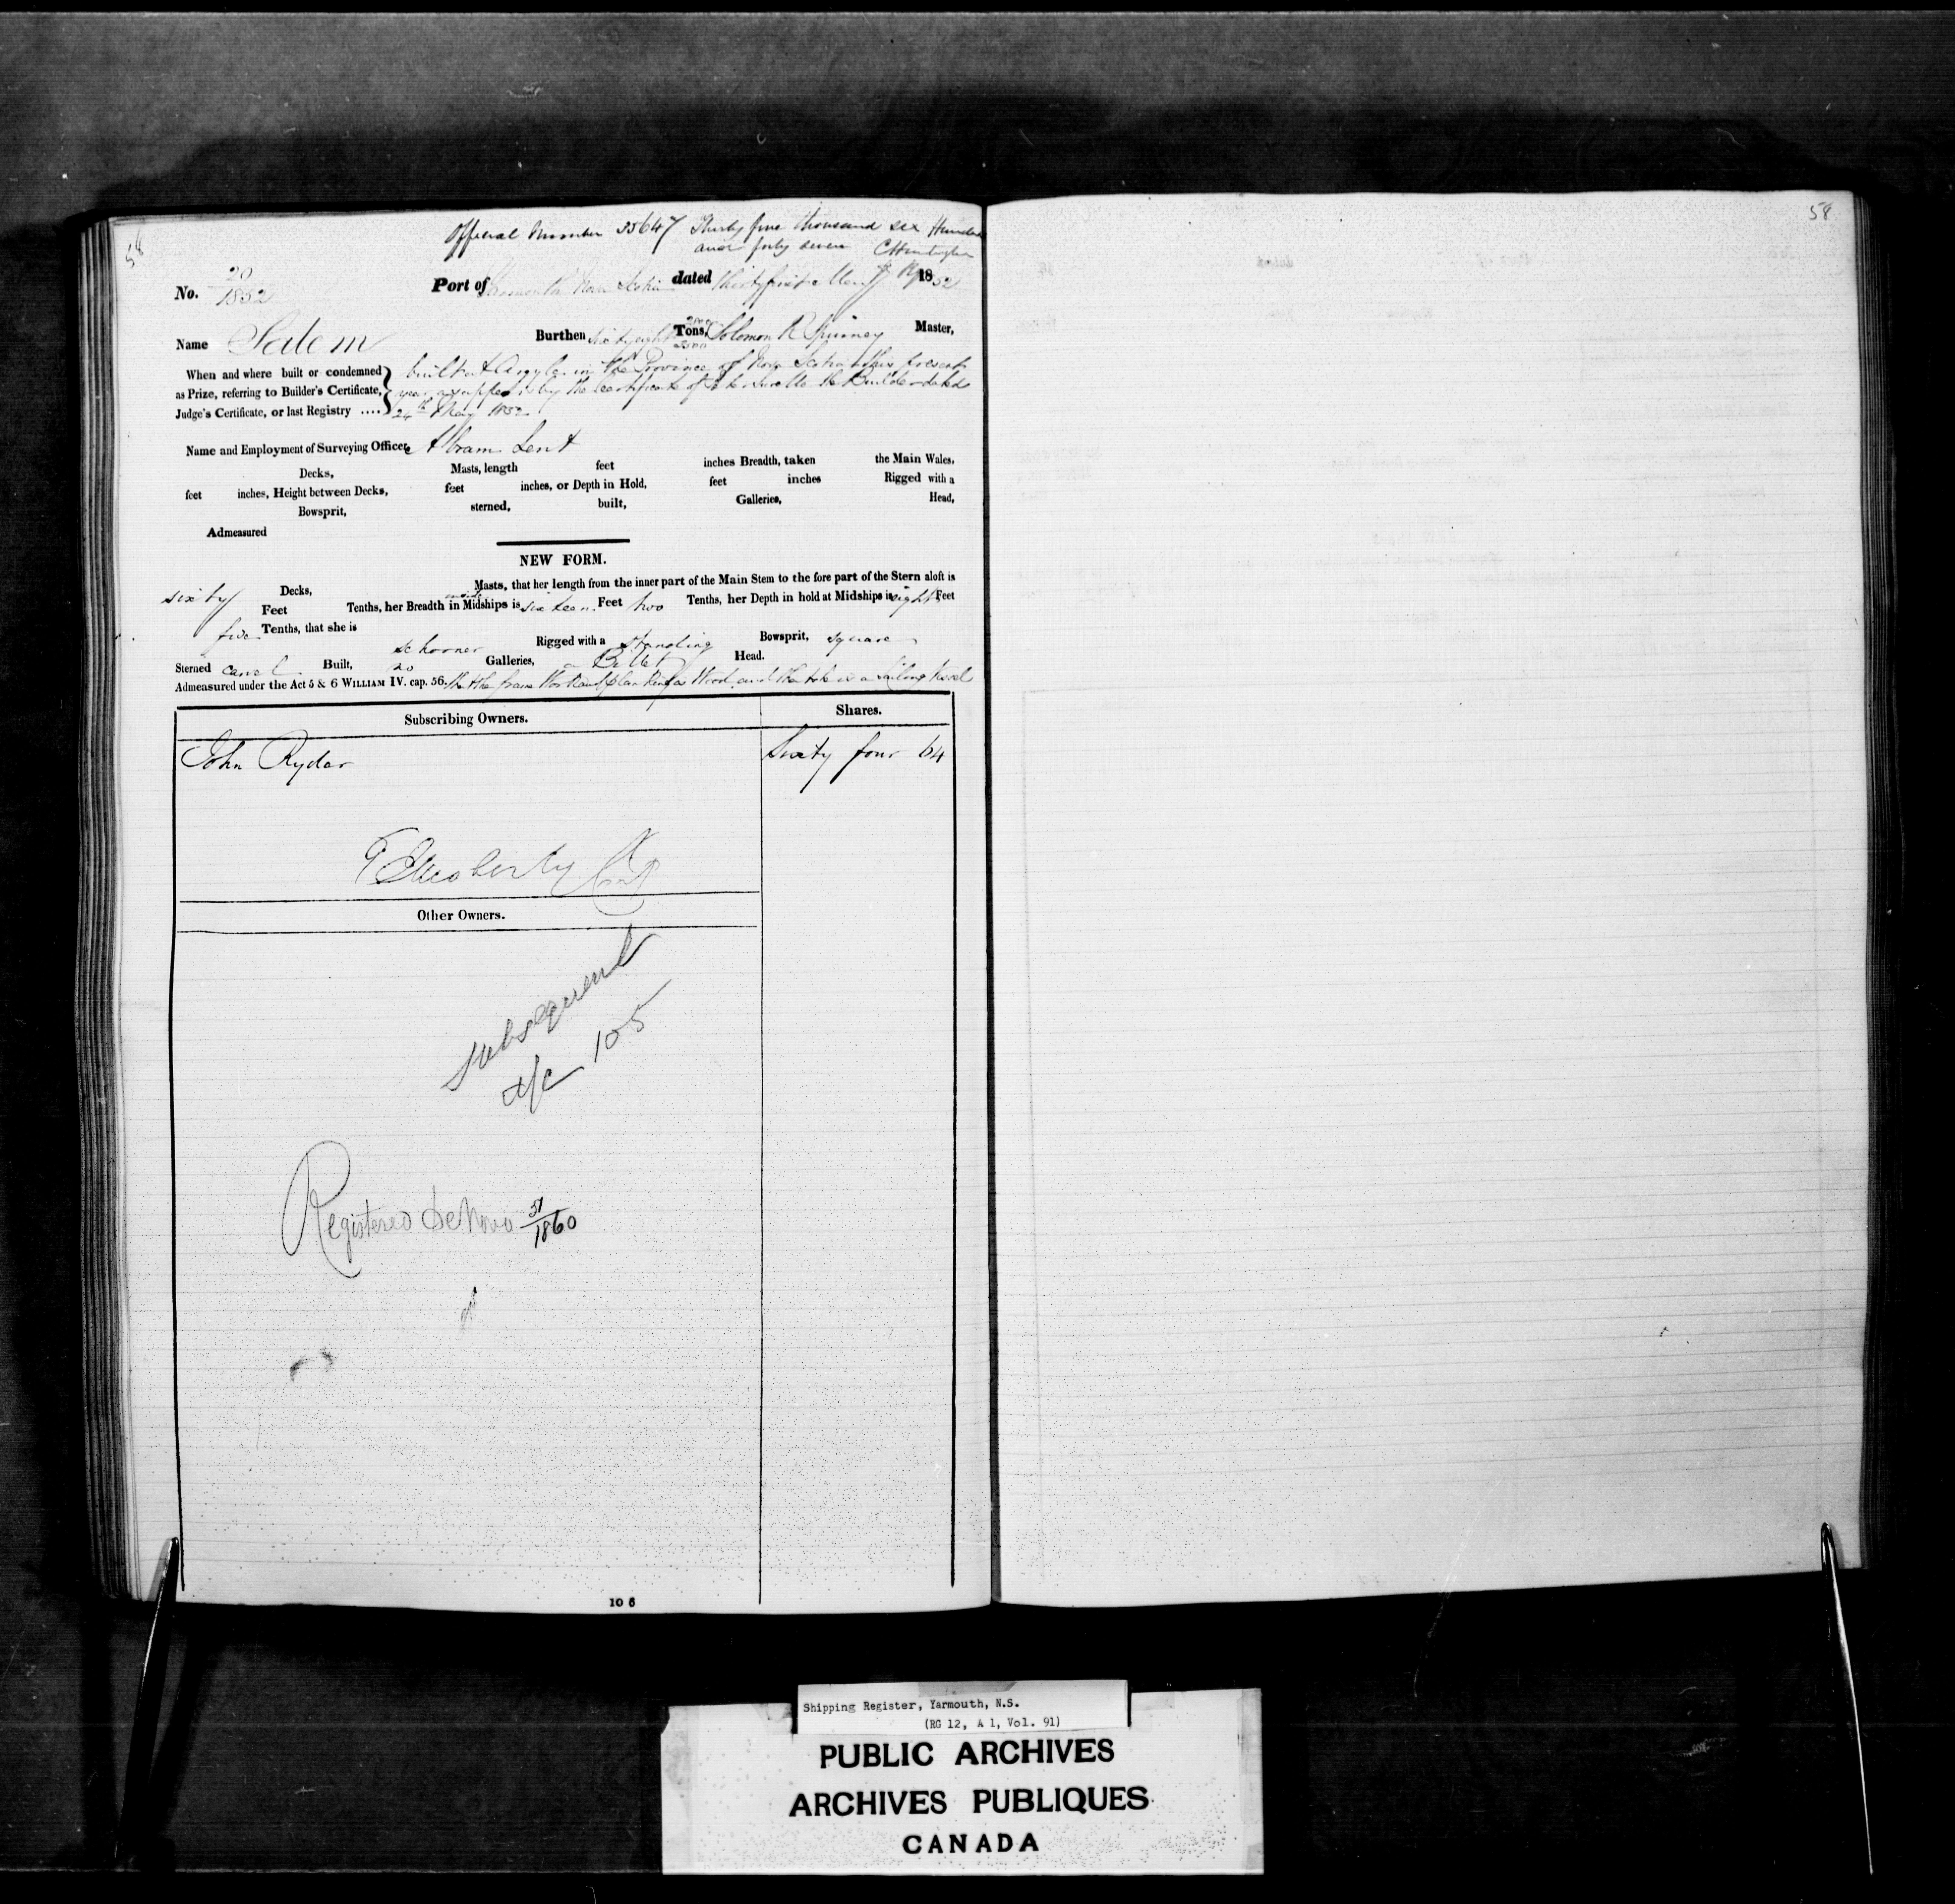 58
58
Official Number 35647 Thirty five thousand six Hundred
and forty seven CHuntington
No. 20
1852
Port of Yarmouth Nova Scotia dated thirty first May 1852
Name Salem Burthen sixty eight Tons, Solomon R Spinney Master,
When and where built or condemned
as Prize, referring to Builder's Certificate,
Judge's Certificate, or last Registry ....
built at Argyle in the Province of Nova Scotia this present
year as appears by the certificate of the Builder dated
24th May 1852
Name and Employment of Surveying Officer, Abram Lent
Decks, Masts, length feet inches Breadth, taken the Main Wales,
feet inches, Height between Decks, feet inches, or Depth in Hold, feet inches Rigged with a
Bowsprit, sterned, built, Galleries, Head,
Admeasured
NEW FORM.
Decks, Masts, that her length from the inner part of the Main Stem to the fore part of the Stern aloft is
sixty Feet Tenths, her Breadth in Midships is sixteen Feet two Tenths, her Depth in hold at Midships is eight Feet
five Tenths, that she is schooner Rigged with a standing Bowsprit, square
Sterned carvel Built, no Galleries, a Billet Head.
Admeasured under the Act 5 & 6 WILLIAM IV. cap. 56. that the frame Work and planking is Wood and that she is a Sailing Vessel
Subscribing Owners. Shares.
John Ryder Sixty four 64
Other Owners.
Subsequent
105
Registered De Novo 51/1860
10 6
Shipping Register, Yarmouth, N.S.
(RG 12, A 1, Vol. 91)
PUBLIC ARCHIVES
ARCHIVES PUBLIQUES
CANADA